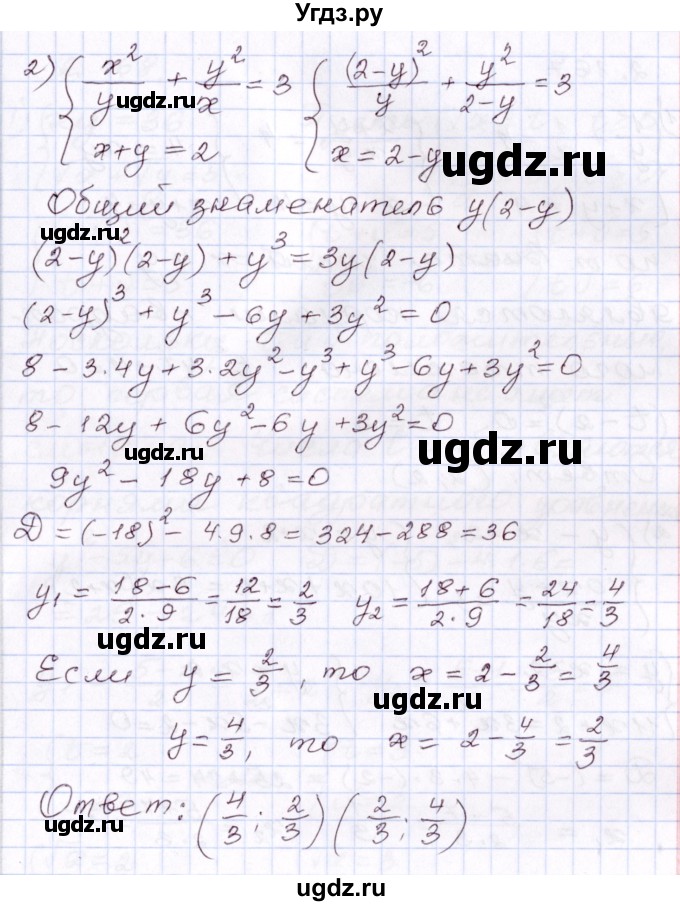 Угдз.ру
2) { x²/y + y²/x = 3 { (2-y)²/y + y²/2-y = 3
угдз.ру
x+y = 2 x = 2-y
ugdz.ru
Общий знаменатель y(2-y)
ugdz.ru
(2-y)²(2-y) + y³ = 3y(2-y)
(2-y)³ + y³ - 6y + 3y² = 0
8 - 3·4y + 3·2y² - y³ + y³ - 6y + 3y² = 0
8 - 12y + 6y² - 6y + 3y² = 0
ugdz.ru
9y² - 18y + 8 = 0
D = (-18)² - 4·9·8 = 324 - 288 = 36
y₁ = 18-6/2·9 = 12/18 = 2/3 y₂ = 18+6/2·9 = 24/18 = 4/3
ugdz.ru
Если y = 2/3, то x = 2 - 2/3 = 4/3
ugdz.ru
y = 4/3, то x = 2 - 4/3 = 2/3
Ответ: (4/3; 2/3) (2/3; 4/3)
ugdz.ru
ugdz.ru